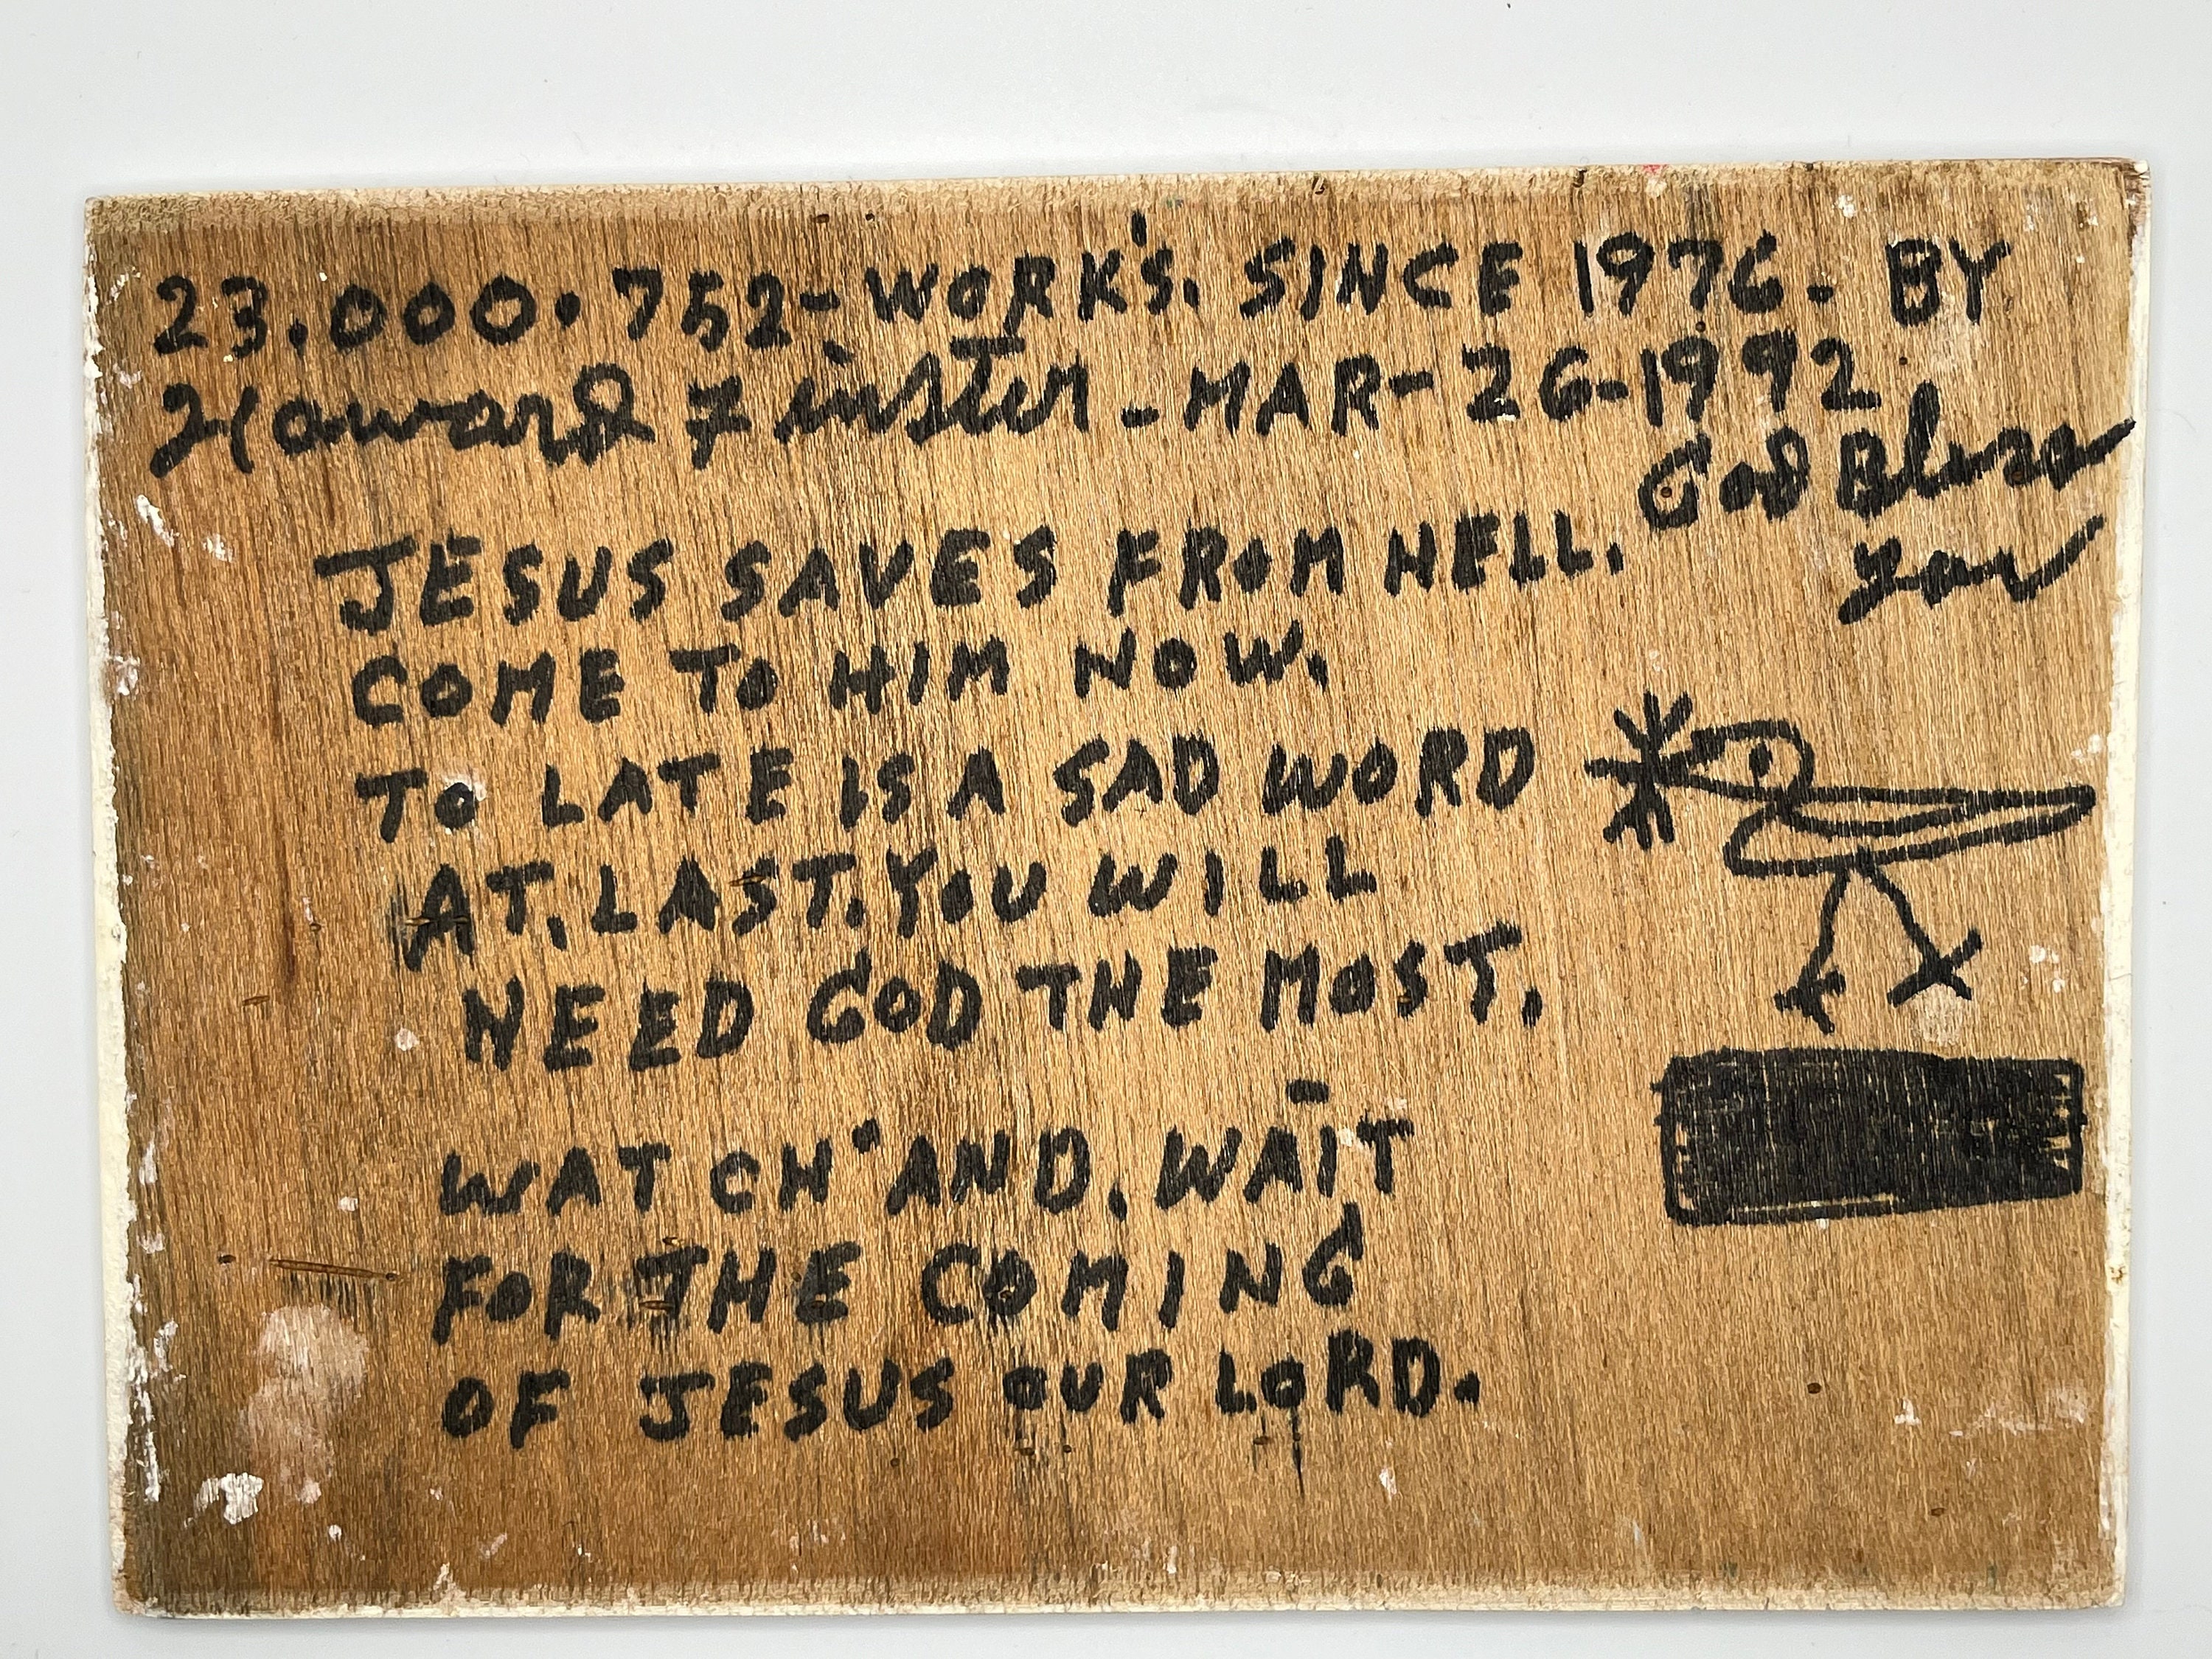 23.000.752-WORK'S. SINCE 1976. BY
Howard Finster - MAR-26-1992.
God Bless
you
JESUS SAVES FROM HELL.
COME TO HIM NOW.
TO LATE IS A SAD WORD
AT. LAST. YOU WILL
NEED GOD THE MOST.
WATCH AND. WAIT
FOR THE COMING
OF JESUS OUR LORD.